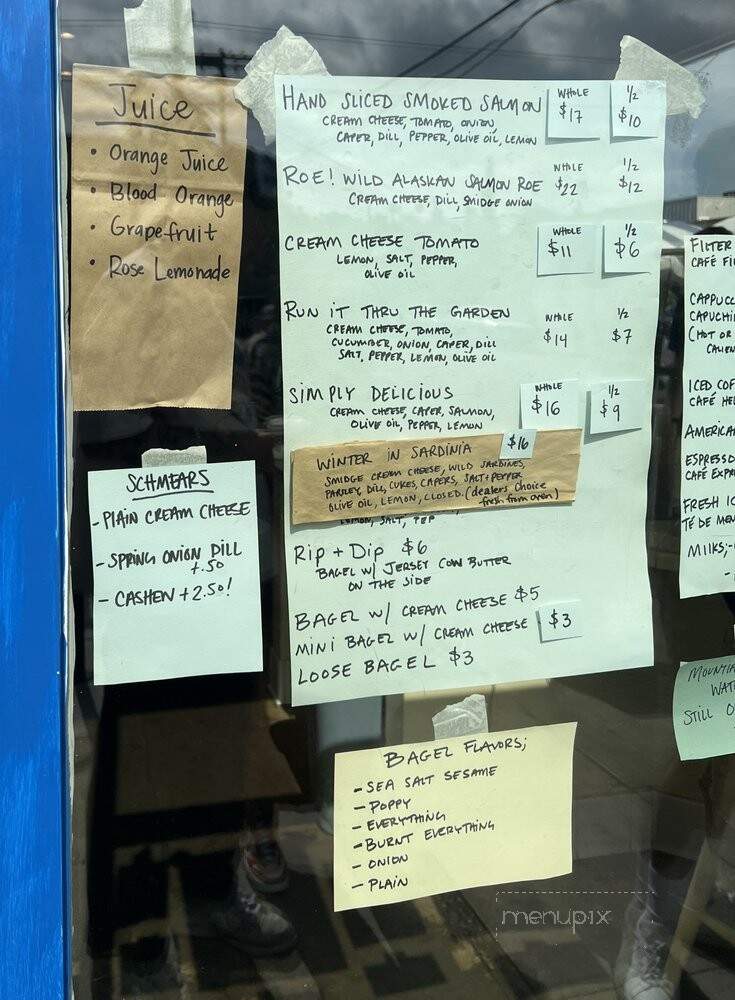 Juice
• Orange Juice
• Blood Orange
• Grapefruit
• Rose Lemonade
SCHMEARS
- PLAIN CREAM CHEESE
- SPRING ONION DILL
+.50
- CASHEW +2.50!
HAND SLICED SMOKED SALMON WHOLE $17 1/2 $10
CREAM CHEESE, TOMATO, ONION,
CAPER, DILL, PEPPER, OLIVE OIL, LEMON
ROE! WILD ALASKAN SALMON ROE WHOLE $22 1/2 $12
CREAM CHEESE, DILL, SMIDGE ONION
CREAM CHEESE TOMATO WHOLE $11 1/2 $6
LEMON, SALT, PEPPER,
OLIVE OIL
RUN IT THRU THE GARDEN WHOLE $14 1/2 $7
CREAM CHEESE, TOMATO,
CUCUMBER, ONION, CAPER, DILL
SALT, PEPPER, LEMON, OLIVE OIL
SIMPLY DELICIOUS WHOLE $16 1/2 $9
CREAM CHEESE, CAPER, SALMON,
OLIVE OIL, PEPPER, LEMON
WINTER IN SARDINIA $16
SMIDGE CREAM CHEESE, WILD SARDINES,
PARSLEY, DILL, CUKES, CAPERS, SALT+PEPPER
OLIVE OIL, LEMON, CLOSED. (dealers choice
fresh from oven)
LEMON, SALT, PEP
Rip + Dip $6
BAGEL W/ JERSEY COW BUTTER
ON THE SIDE
BAGEL W/ CREAM CHEESE $5
MINI BAGEL W/ CREAM CHEESE $3
LOOSE BAGEL $3
BAGEL FLAVORS;
- SEA SALT SESAME
- POPPY
- EVERYTHING
- BURNT EVERYTHING
- ONION
- PLAIN
FILTER
CAFÉ FI
CAPPUCC
CAPUCHI
(HOT OR
CALIEN
ICED COF
CAFÉ HE
AMERICA
ESPRESSO
CAFÉ EXPR
FRESH IC
TÉ DE MEN
MILKS;-
MOUNTA
WAT
STILL O
menupix